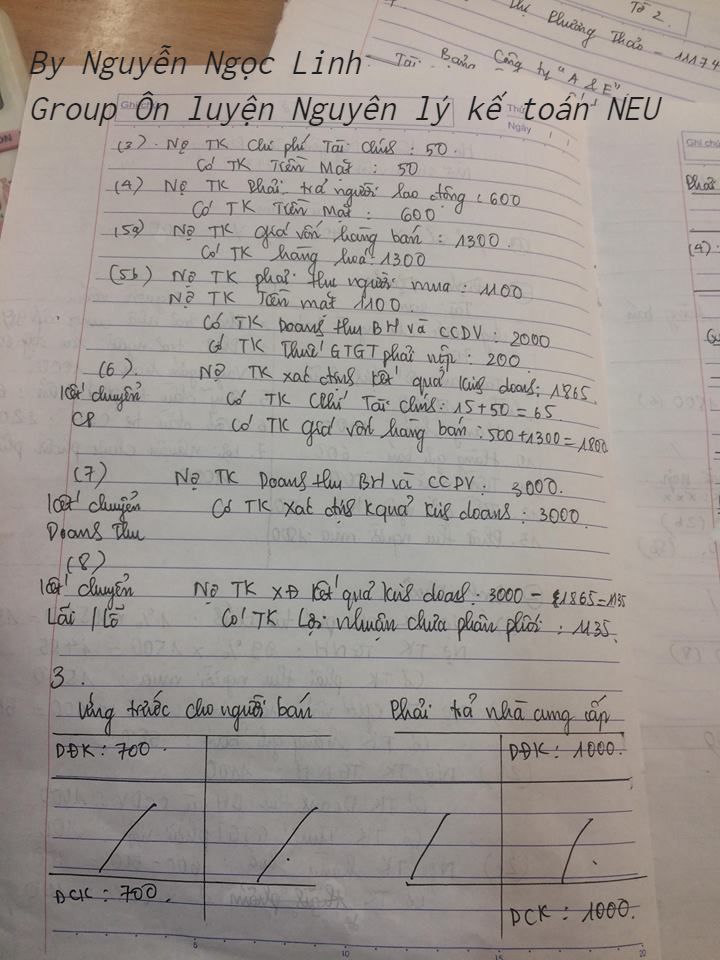 Tờ 2.
Thị Phương Thảo - 11174
Tài Bảng Công ty "A & E"
By Nguyễn Ngọc Linh
Group Ôn luyện Nguyên lý kế toán NEU
Ghi chú
Thứ
Ngày
(3). Nợ TK Chi phí Tài chính : 50.
Có TK Tiền Mặt : 50
(4) Nợ TK Phải trả người lao động : 600
Có TK Tiền Mặt : 600
(5a) Nợ TK giá vốn hàng bán : 1300.
Có TK hàng hoá : 1300
(5b) Nợ TK phải thu người mua : 1100
Nợ TK Tiền mặt 1100.
Có TK Doanh thu BH và CCDV : 2000
Có TK Thuế GTGT phải nộp : 200.
(6). Nợ TK xác định kết quả kinh doanh: 1865.
Kết chuyển Có TK CPhí Tài chính : 15 + 50 = 65.
CP Có TK giá vốn hàng bán : 500 + 1300 = 1800
(7) Nợ TK Doanh thu BH và CCDV : 3000.
Kết chuyển Có TK xác định kquả kinh doanh : 3000.
Doanh thu
(8)
Kết chuyển Nợ TK XĐ kết quả kinh doanh : 3000 - 1865 = 1135
Lãi / Lỗ Có TK Lợi nhuận chưa phân phối : 1135.
3.
Ứng trước cho người bán Phải trả nhà cung cấp
DĐK : 700. DĐK : 1000.
DCK : 700. DCK : 1000.
Ghi chú
Phải
(4).
5 10 15 20